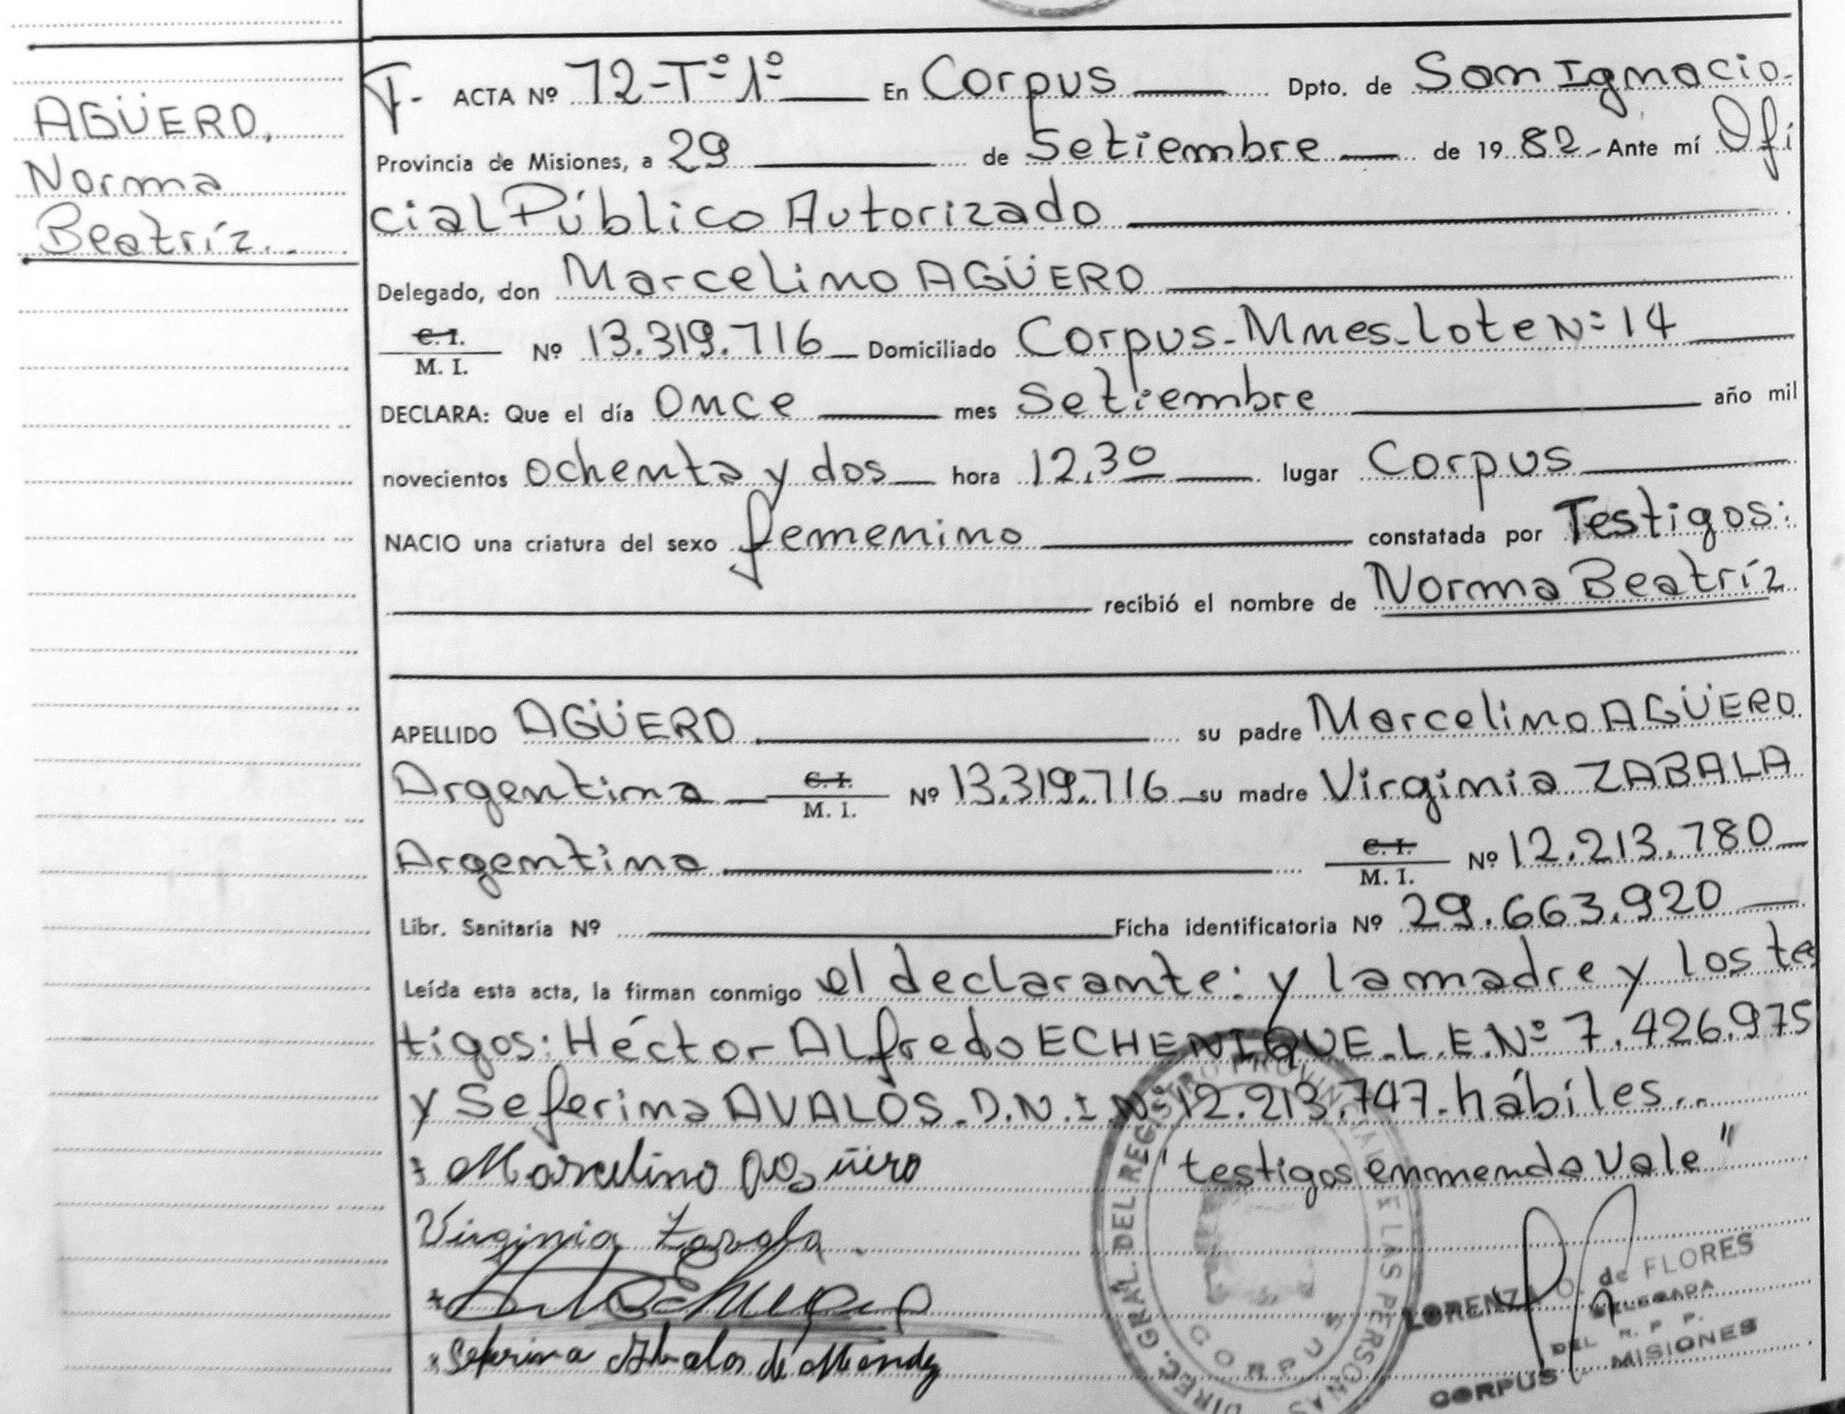 AGÜERO,
Norma
Beatríz..
F- ACTA Nº 72-Tº1º En Corpus Dpto. de San Ignacio.
Provincia de Misiones, a 29 de Setiembre de 1982.- Ante mí Ofi
cial Público Autorizado
Delegado, don Marcelino AGÜERO
C.I. / M. I. Nº 13.319.716 Domiciliado Corpus-Mnes-lote Nº 14
DECLARA: Que el día Once mes Setiembre año mil
novecientos ochenta y dos hora 12,30 lugar Corpus
NACIO una criatura del sexo femenino constatada por Testigos:
recibió el nombre de Norma Beatríz
APELLIDO AGÜERO. su padre Marcelino AGÜERO
Argentina C.I. / M. I. Nº 13.319.716 su madre Virginia ZABALA
Argentina C. I. / M. I. Nº 12.213.780
Libr. Sanitaria Nº Ficha identificatoria Nº 29.663.920
Leída esta acta, la firman conmigo el declarante: y la madre y los tes
tigos: Héctor Alfredo ECHENIQUE-L.E.Nº 7.426.975
y Seferina AVALOS-D.N.I Nº 12.213.747-hábiles..
Marcelino Agüero "testigos enmenda Vale"
Virginia Zavala.
Seferina Abalos de Mendez
DIREC. GRAL. DEL REGISTRO PROVINCIAL DE LAS PERSONAS
CORPUS
LORENZA O. de FLORES
DELEGADA
DEL R. P. P.
CORPUS MISIONES